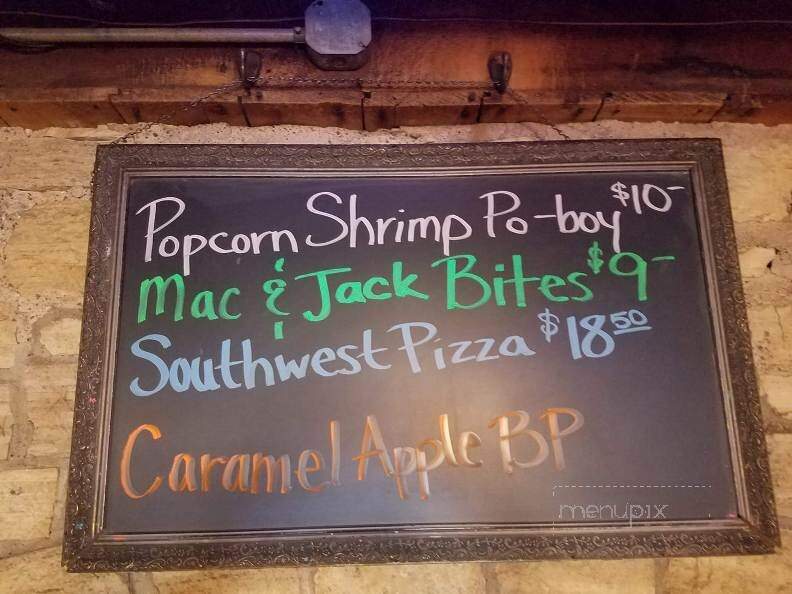 Popcorn Shrimp Po-boy $10-
Mac & Jack Bites $9-
Southwest Pizza $18 50
Caramel Apple BP
menupix